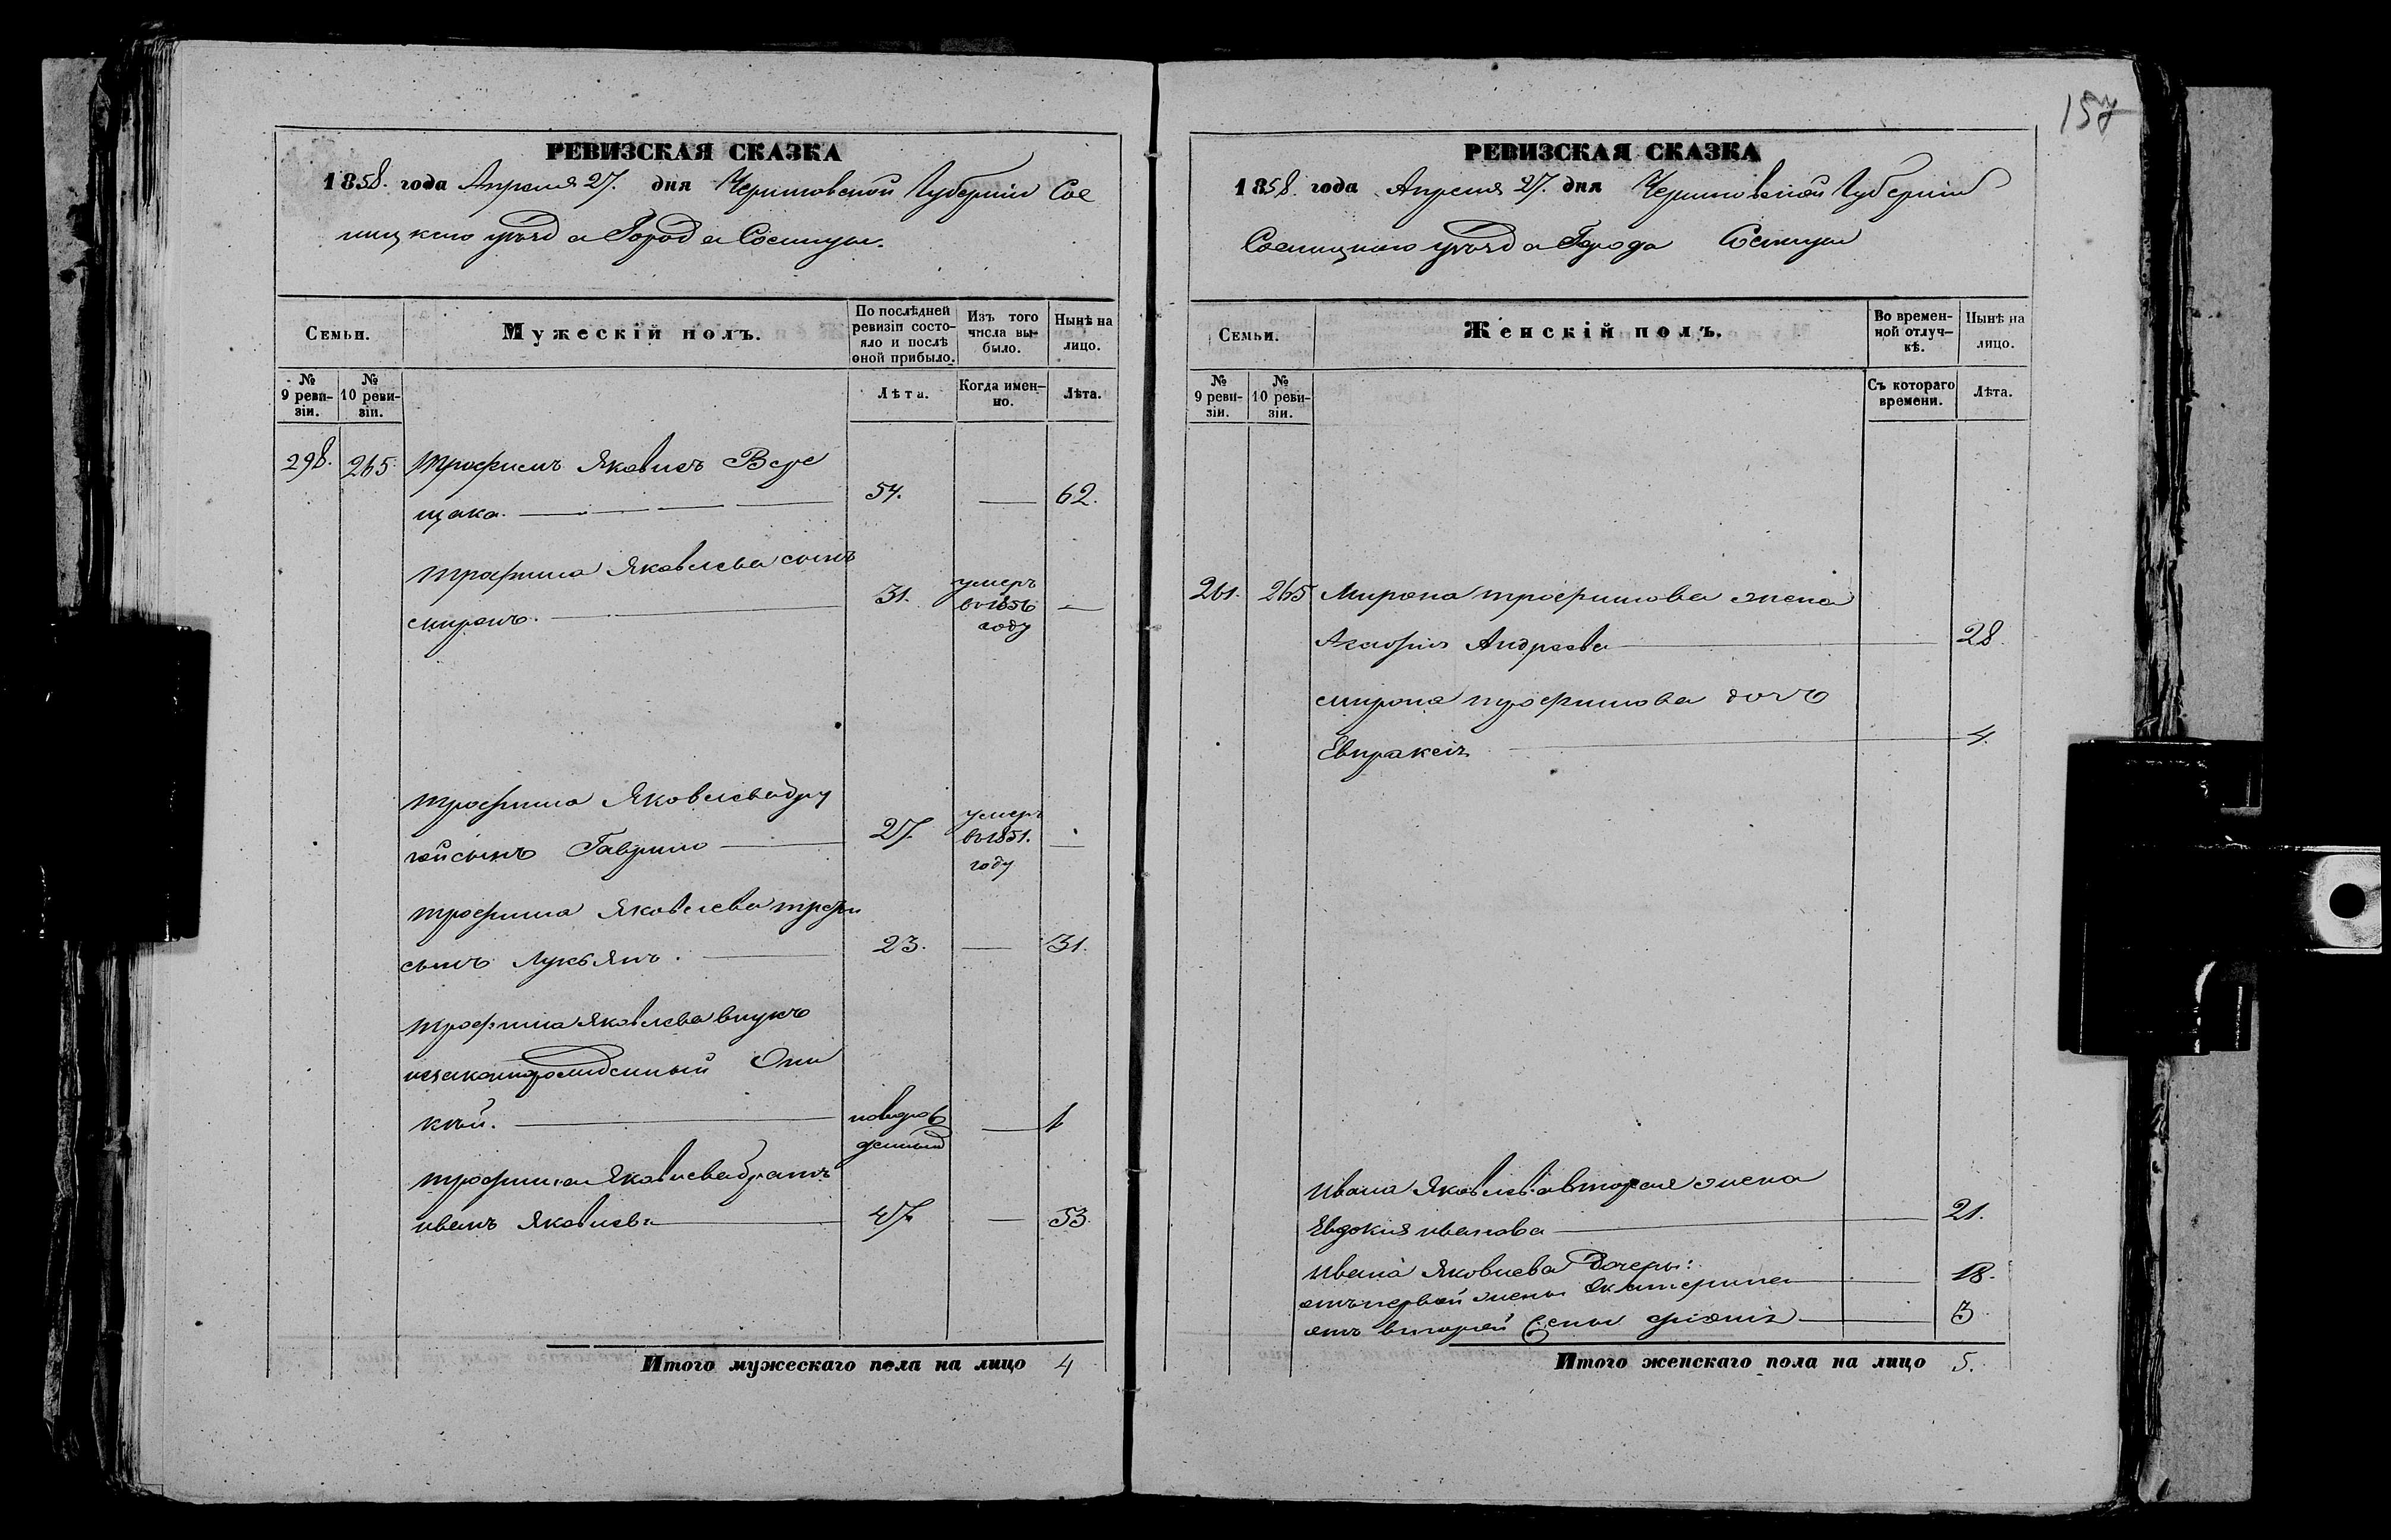 157
РЕВИЗСКАЯ СКАЗКА
1858. года Апреля 27. дня Черниговской Губернiи Сос
ницкого уѣзда Города Сосницы.
Семьи.
Мужескiй полъ.
По послѣдней ревизiи состояло и послѣ оной прибыло.
Изъ того числа выбыло.
Нынѣ на лицо.
№ 9 ревизiи.
№ 10 ревизiи.
Лѣта.
Когда именно.
Лѣта.
298. 265. Трофимъ Яковлевъ Вере
щака. 54. — 62.
Трофима Яковлева сынъ
Миронъ. 31. умеръ въ 1856 году —
Трофима Яковлева дру
гой сынъ Гаврило 27. умеръ въ 1851. году —
Трофима Яковлева трети
сынъ Лукьянъ. 23. — 31.
Трофима Яковлева внукъ
незаконнорожденный Они
кѣй. новорожденный — 1
Трофима Яковлева братъ
Иванъ Яковлевъ 47. — 53.
Итого мужескаго пола на лицо 4
РЕВИЗСКАЯ СКАЗКА
1858. года Апреля 27. дня Черниговской Губернiи
Сосницкого уѣзда Города Сосницы
Семьи.
Женскiй полъ.
Во временной отлучкѣ.
Нынѣ на лицо.
№ 9 ревизiи.
№ 10 ревизiи.
Съ котораго времени.
Лѣта.
261. 265 Мирона Трофимова жена
Андреева 28.
Мирона Трофимова дочь
Евпраксiя 4.
Ивана Яковлева вторая жена
Евдокия Иванова 21.
Ивана Яковлева дочери:
отъ первой жены Екатерина 18.
отъ второй жены 3
Итого женскаго пола на лицо 5.